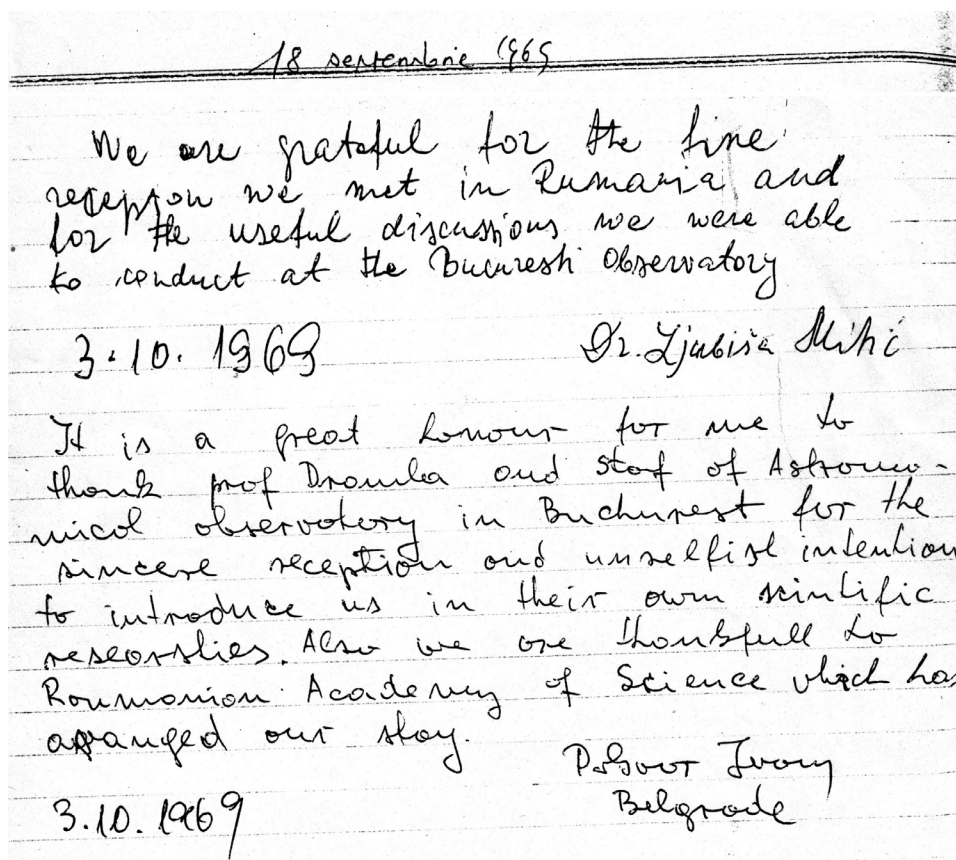 18 septembrie 1969
We are grateful for the fine
reception we met in Rumania and
for the useful discussions we were able
to conduct at the Bucuresti Observatory
3.10.1969 Dr. Ljubiša Mitić
It is a great honour for me to
thank prof Dramba and staf of Astrono-
mical observatory in Buchurest for the
sincere reception and unselfish intention
to introduce us in their own scintific
Also we are thankfull to
Roumanian Academy of Science which has
arranged our stay.
Belgrade
3.10.1969